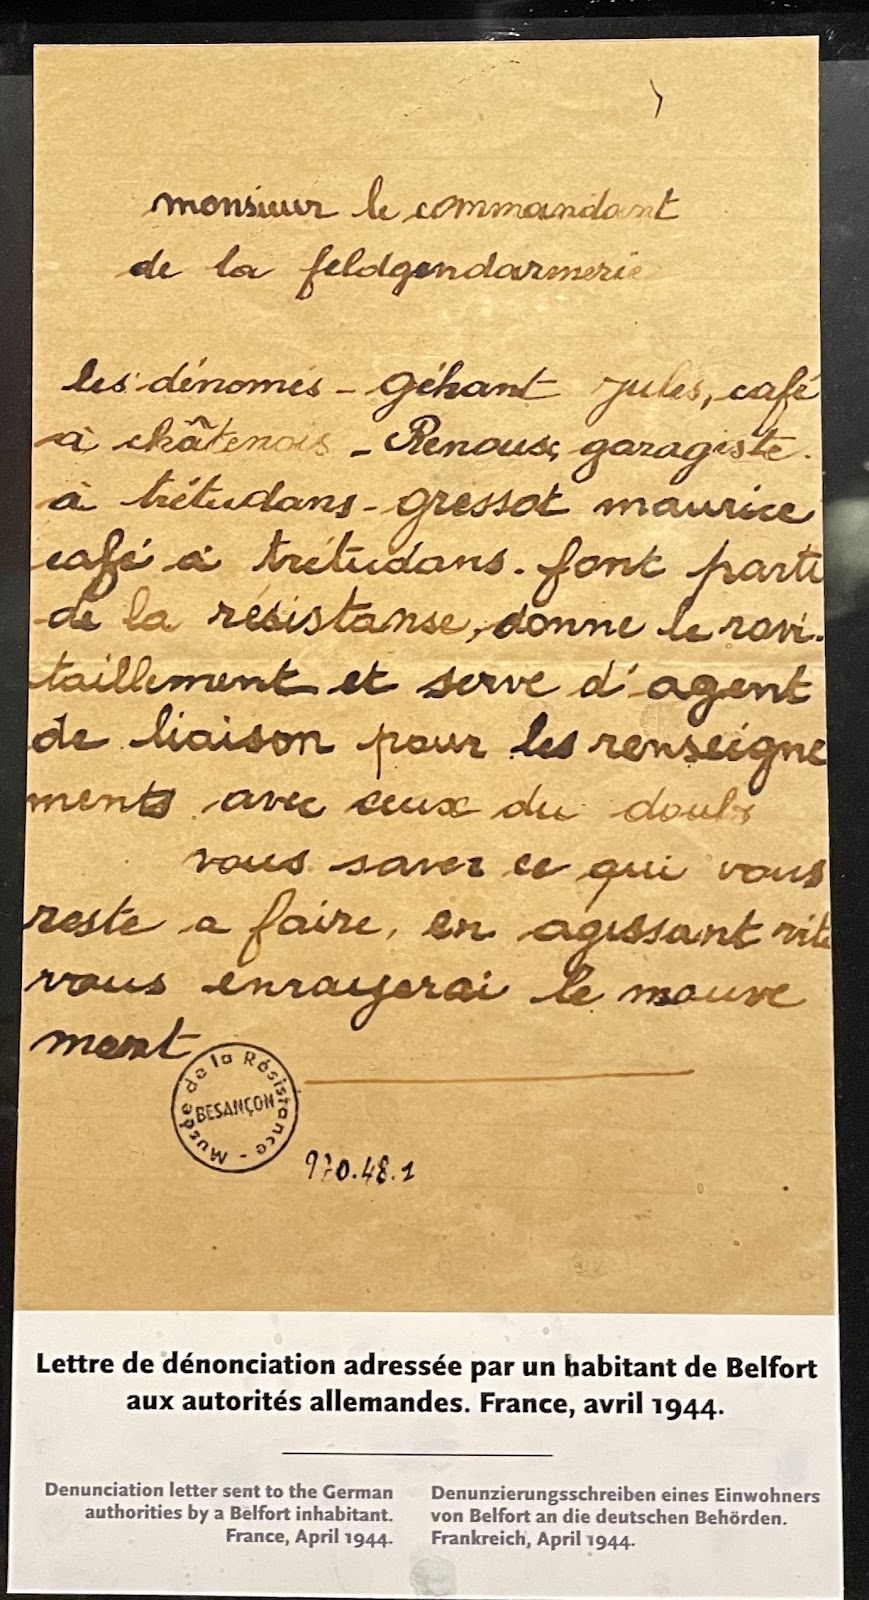 monsieur le commandant
de la feldgendarmerie
les dénomés - géhant Jules, café
à châtenois - Renoux, garagiste.
à trétudans - gressot maurice
café à trétudans. font parti
de la résistanse, donne le ravi-
taillement et serve d'agent
de liaison pour les renseigne
ments avec ceux du doubs
vous saver ce qui vous
reste a faire, en agissant vite
vous enrayerai le mouve
ment
Musée de la Résistance - BESANÇON
970.48.1
Lettre de dénonciation adressée par un habitant de Belfort
aux autorités allemandes. France, avril 1944.
Denunciation letter sent to the German
authorities by a Belfort inhabitant.
France, April 1944.
Denunzierungsschreiben eines Einwohners
von Belfort an die deutschen Behörden.
Frankreich, April 1944.